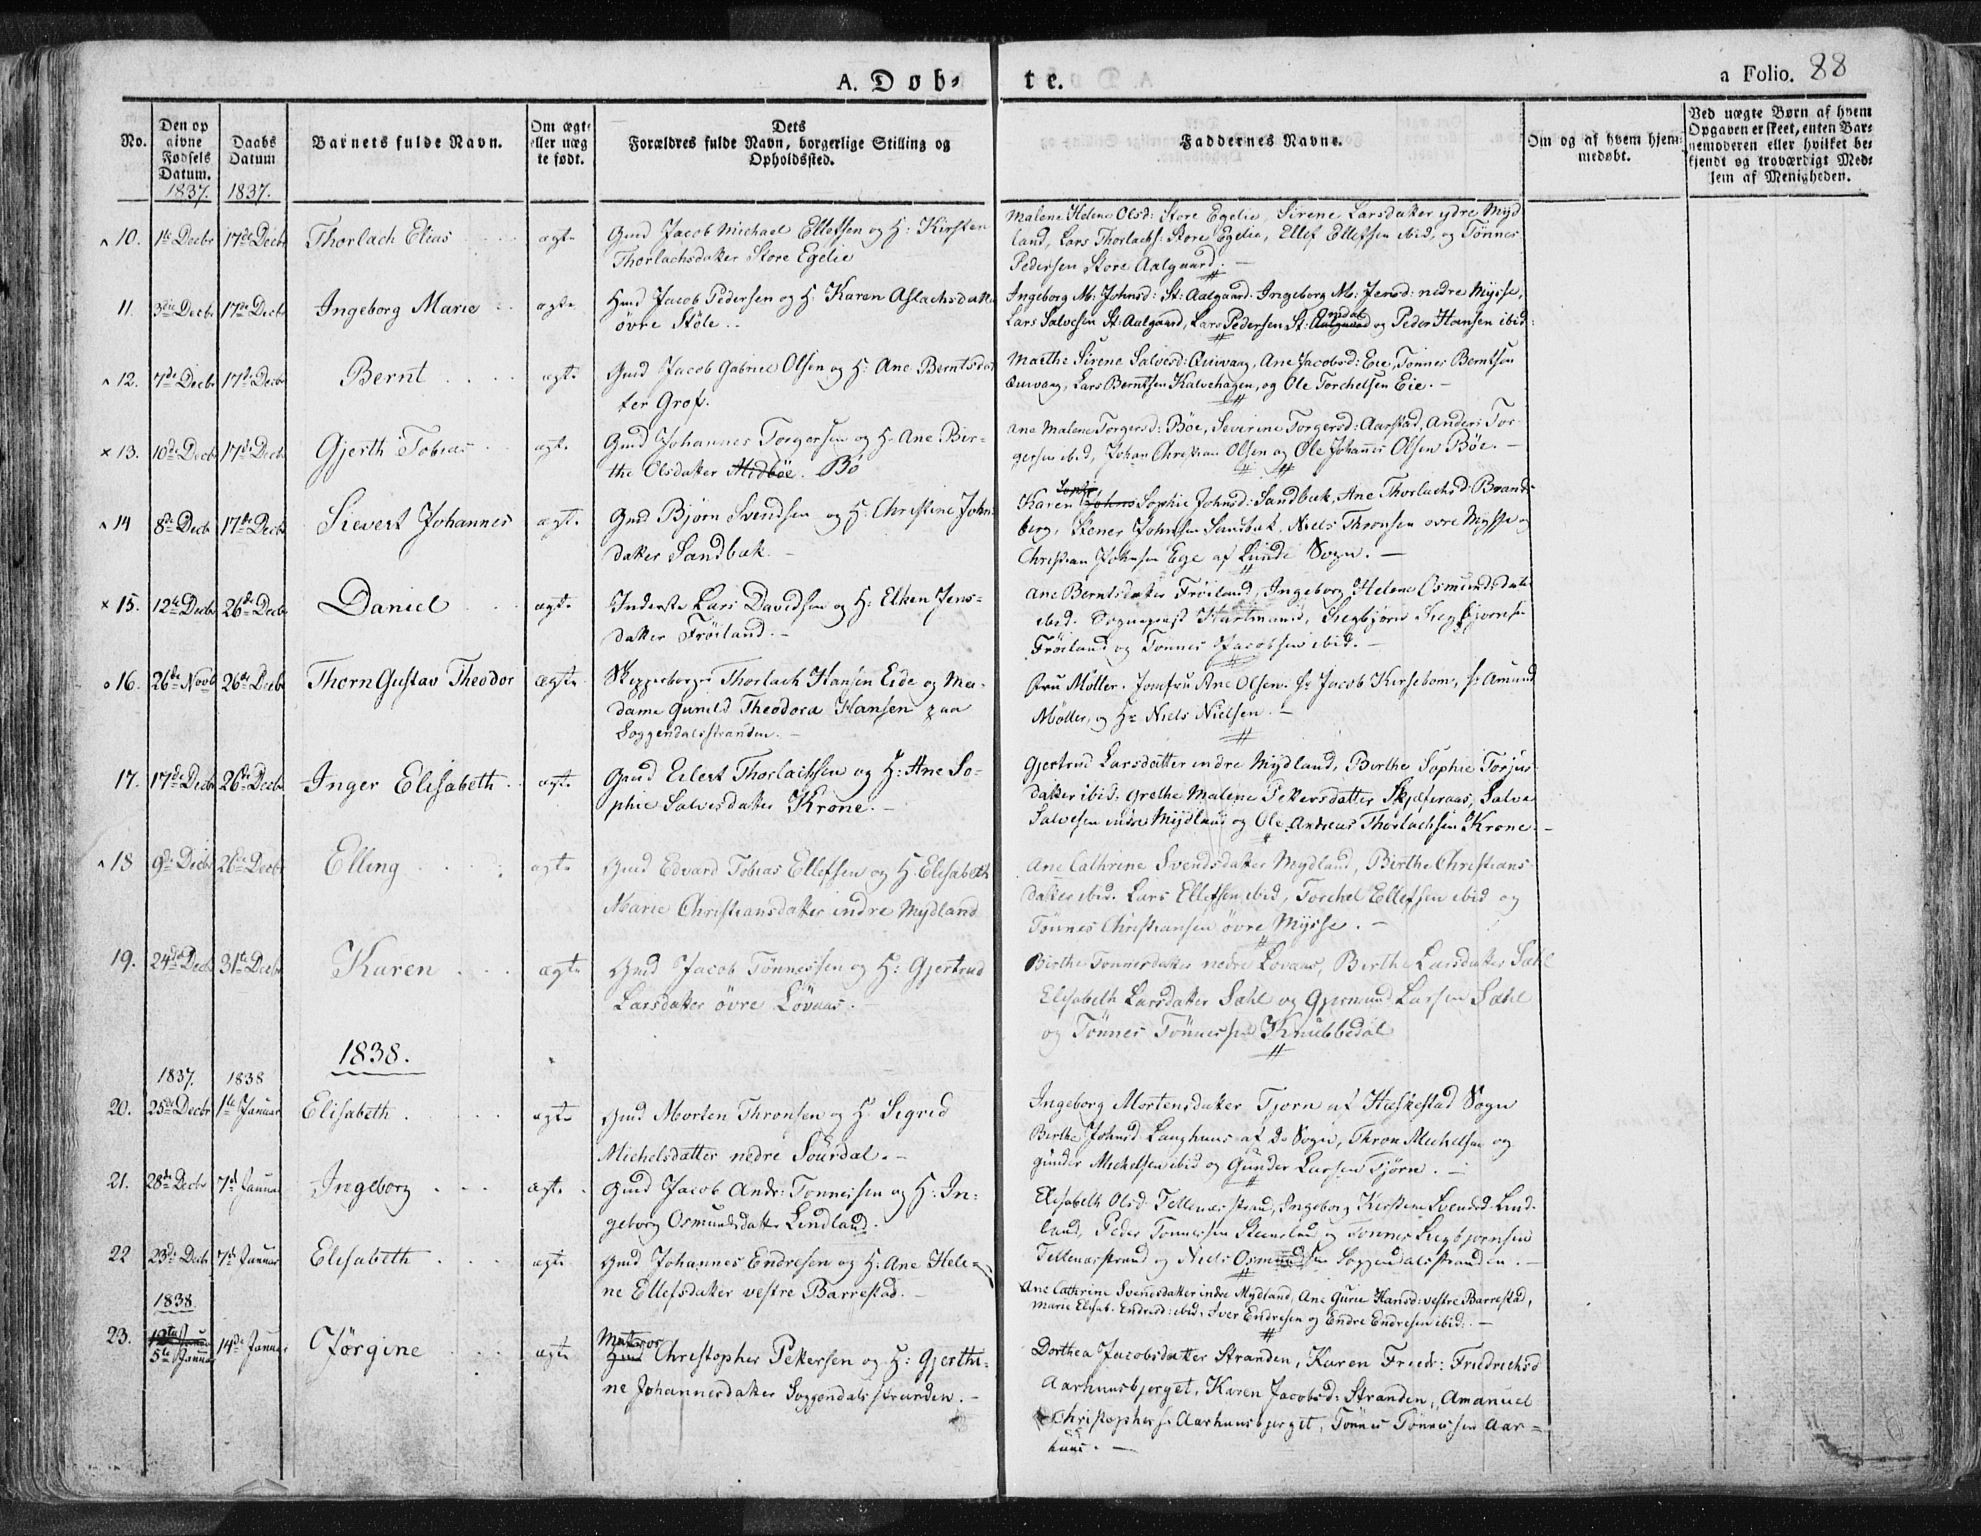 A. Døb-
te.
a Folio. 88
No.
Den opgivne Fødsels Datum. 1837.
Daabs Datum 1837.
Barnets fulde Navn.
Om ægte eller uægte født.
Dets Forældres fulde Navn, borgerlige Stilling og Opholdssted.
Faddernes Navne.
Om og af hvem hjemmedøbt.
Ved uægte Børn af hvem
Opgaven er skeet, enten Bar-
nemoderen eller hvilket be-
kjendt og troværdigt Med-
lem af Menigheden.
10. 1ste Decbr 17de Decbr Thorlach Elias ægte Gmd Jacob Michael Ellefsen og H: Kirsten
Thorlachsdatter Store Egelie
Malene Helene Olsd: Store Egelie, Sirene Larsdatter ydre Myd
land, Lars Thorlachs: Store Egelie, Ellef Ellefsen ibid, og Tönnes
Pedersen Store Aalgaard. —
11 3die Decbr 17de Decbr Ingeborg Marie ægte Gmd Jacob Pedersen og H: Karen Aslachsdatter
övre Stöle..
Ingeborg M: Johnsd: St: Aalgaard. Ingeborg M: Jensd: nedre Mysse,
Lars Salvesen St: Aalgaard, Lars Pedersen St: Aalgaard og Peder Hansen ibid:
12. 7de Decbr 17de Decbr Bernt ægte Gmd Jacob Gabriel Olsen og H: Ane Berntsdat
ter Grof.
Marthe Sirene Salvesd: Qvivaag, Ane Jacobsd: Eie, Tönnes Berntsen
Qvivaag, Lars Berntsen Kalvehagen, og Ole Torchelsen Eie. —
× 13. 10de Decbr 17de Decbr Gjerth Tobias ægte Gmd Johannes Torgersen og H: Ane Bir-
the Olsdatter Midböe. Bö
Ane Malene Torgersd: Böe, Severine Torgersd: Aarstad, Anders Tor
gersen ibid, Johan Christian Olsen og Ole Johannes Olsen Böe. —
14 8de Decbr 17de Decbr Sievert Johannes ægte Gmd Bjørn Svendsen og H: Christine Johns
datter Sandbæk. —
Karen Sophie Johnsd: Sandbæk, Ane Thorlachsd: Brands
berg, Stener Johnsen Sandbæk, Niels Thronsen övre Mysse og
Christian Johnsen Ege af Lunde Sogn. —
× 15. 12te Decbr 26de Decbr Daniel ægte Inderste Lars Davidsen og H: Elken Jens-
datter Fröiland. —
Ane Berntsdatter Fröiland, Ingeborg Helene Osmundsdat:
ibid. Sognepræst Hartmann, Siegbjörn Siegbjörnsen
Fröiland og Tönnes Jacobsen ibid. —
o 16. 26de Novb 26de Decbr Thorn Gustav Theodor ægte Skipperborger Thorlach Hansen Eide og Ma-
dame Gunild Theodora Hansen paa
Soggendalsstranden. —
Fru Möller. Jomfru Ane Olsen. Hr Jacob Kirsebom, Hr Amund
Möller, og Hr Niels Nielsen. —
17. 17de Decbr 26de Decbr Inger Elisabeth ægte Gmd Eilert Thorlachsen og H: Ane So-
phie Salvesdatter Krone. —
Gjertrud Larsdatter indre Mydland, Birthe Sophie Torjus
datter ibid. Grethe Malene Pettersdatter Skjæferaas, Salve
Salvesen indre Mydland og Ole Andreas Thorlachsen Krone. —
18 9de Decbr 26de Decbr Elling ægte Gmd Edvard Tobias Ellefsen og H: Elisabeth
Marie Christiansdatter indre Mydland
Ane Cathrine Svendsdatter Mydland, Birthe Christians
datter ibid. Lars Ellefsen ibid, Torchel Ellefsen ibid og
Tönnes Christiansen övre Mysse. —
19. 24de Decbr 31te Decbr Karen ægte Gmd Jacob Tönnessen og H: Gjertrud
Larsdatter övre Lövaas. —
Birthe Tönnesdatter nedre Lovaas, Birthe Larsdatter Sæhl
Elisabeth Larsdatter Sæhl og Gjermund Larsen Sæhl
og Tönnes Tönnessen Knubbedal
1838.
1837. 1838
20. 25de Decbr 1te Januar Elisabeth ægte Gmd Morten Thronsen og H: Sigrid
Michelsdatter nedre Sourdal. —
Ingeborg Mortensdatter Tjorn af Heskestad Sogn
Birthe Johnsd: Langhuus af do Sogn, Thron Michelsen og
Gunder Michelsen ibid og Gunder Larsen Tjörn. —
21. 28de Decbr 7de Januar Ingeborg ægte Gmd Jacob Andr: Tonnessen og H: In-
geborg Osmundsdatter Lindland.
Elisabeth Olsd: Tellenæsstrand, Ingeborg Kirstine Svendsd: Lind-
land, Peder Tonnessen Steinslund og Tonnes Siegbjørnsen
Tellenæsstrand og Niels Osmundsen Soggendalsstranden. —
22 23de Decbr 7de Januar Elisabeth ægte Gmd Johannes Endresen og H: Ane Hele-
ne Ellefsdatter vestre Barrestad. —
Ane Cathrine Svensdatter indre Mydland, Ane Gurie Hansd: vestre Barrestad,
Marie Elisab: Endresd: ibid, Iver Endresen og Endre Endresen ibid. —
1838.
23. 5te Januar 14de Januar Jørgine ægte Matros
Gmd Christopher Pettersen og H: Gjerthi-
ne Johannesdatter Soggendalsstranden. —
Dorthea Jacobsdatter Stranden, Karen Friedr: Friedrichsd
Aarhuusbjerget, Karen Jacobsd: Stranden, Amanuel
Christophersn Aarhuusbjerget, Tönnes Tönnessen Aar-
huus. —